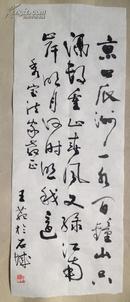 京口瓜洲一水间鐘山只
隔数重山春风又绿江南
岸明月何时照我還
宝法家教正
王於石城